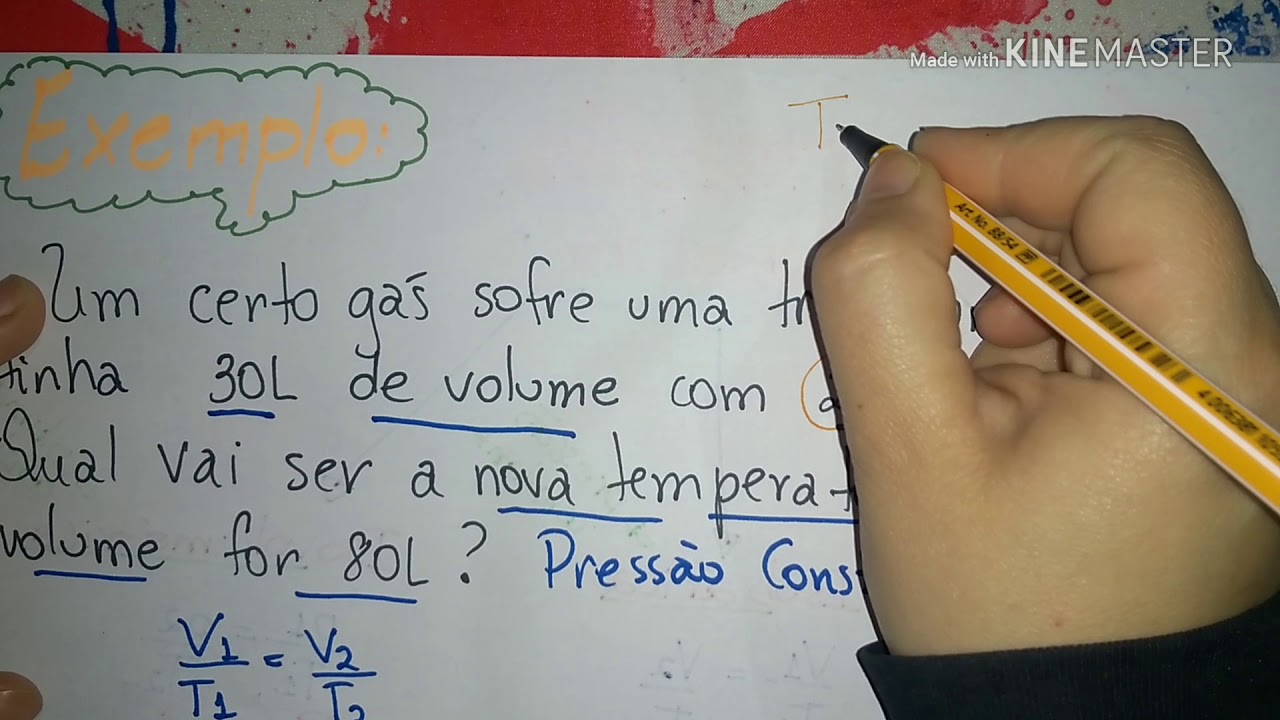 Made with KINEMASTER
Exemplo:
T
Um certo gás sofre uma
tinha 30L de volume com
Qual vai ser a nova tempera-
volume for 80L? Pressão Cons
V1/T1 = V2/T2
Art. No. 88/54